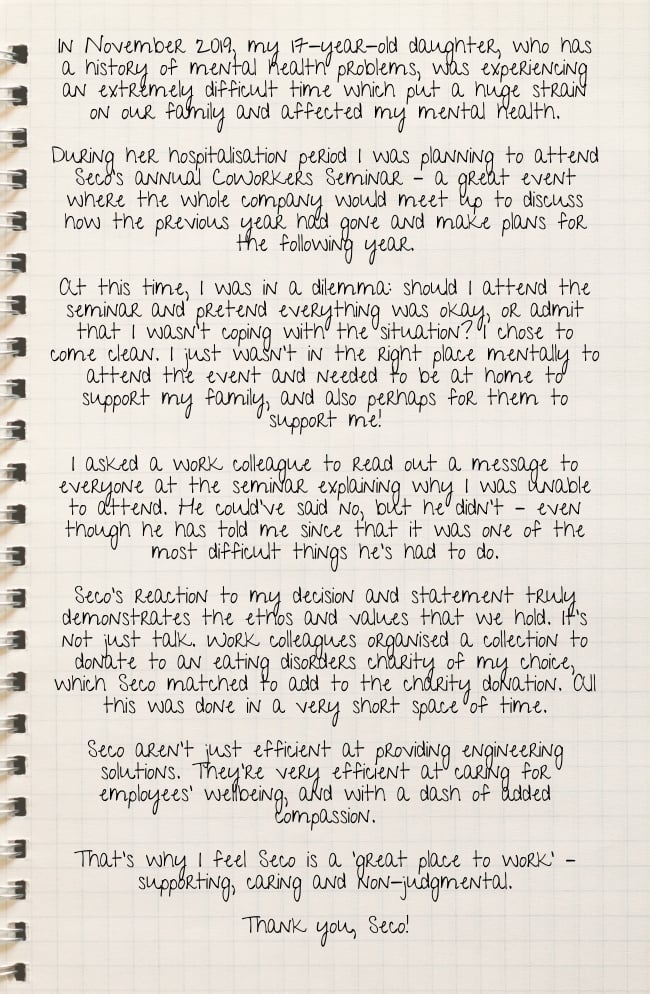 In November 2019, my 17-year-old daughter, who has
a history of mental health problems, was experiencing
an extremely difficult time which put a huge strain
on our family and affected my mental health.
During her hospitalisation period I was planning to attend
Seco's annual Coworkers Seminar - a great event
where the whole company would meet up to discuss
how the previous year had gone and make plans for
the following year.
At this time, I was in a dilemma: should I attend the
seminar and pretend everything was okay, or admit
that I wasn't coping with the situation? I chose to
come clean. I just wasn't in the right place mentally to
attend the event and needed to be at home to
support my family, and also perhaps for them to
support me!
I asked a work colleague to read out a message to
everyone at the seminar explaining why I was unable
to attend. He could've said no, but he didn't - even
though he has told me since that it was one of the
most difficult things he's had to do.
Seco's reaction to my decision and statement truly
demonstrates the ethos and values that we hold. It's
not just talk. Work colleagues organised a collection to
donate to an eating disorders charity of my choice,
which Seco matched to add to the charity donation. All
this was done in a very short space of time.
Seco aren't just efficient at providing engineering
solutions. They're very efficient at caring for
employees' wellbeing, and with a dash of added
compassion.
That's why I feel Seco is a 'great place to work' -
supporting, caring and non-judgmental.
Thank you, Seco!